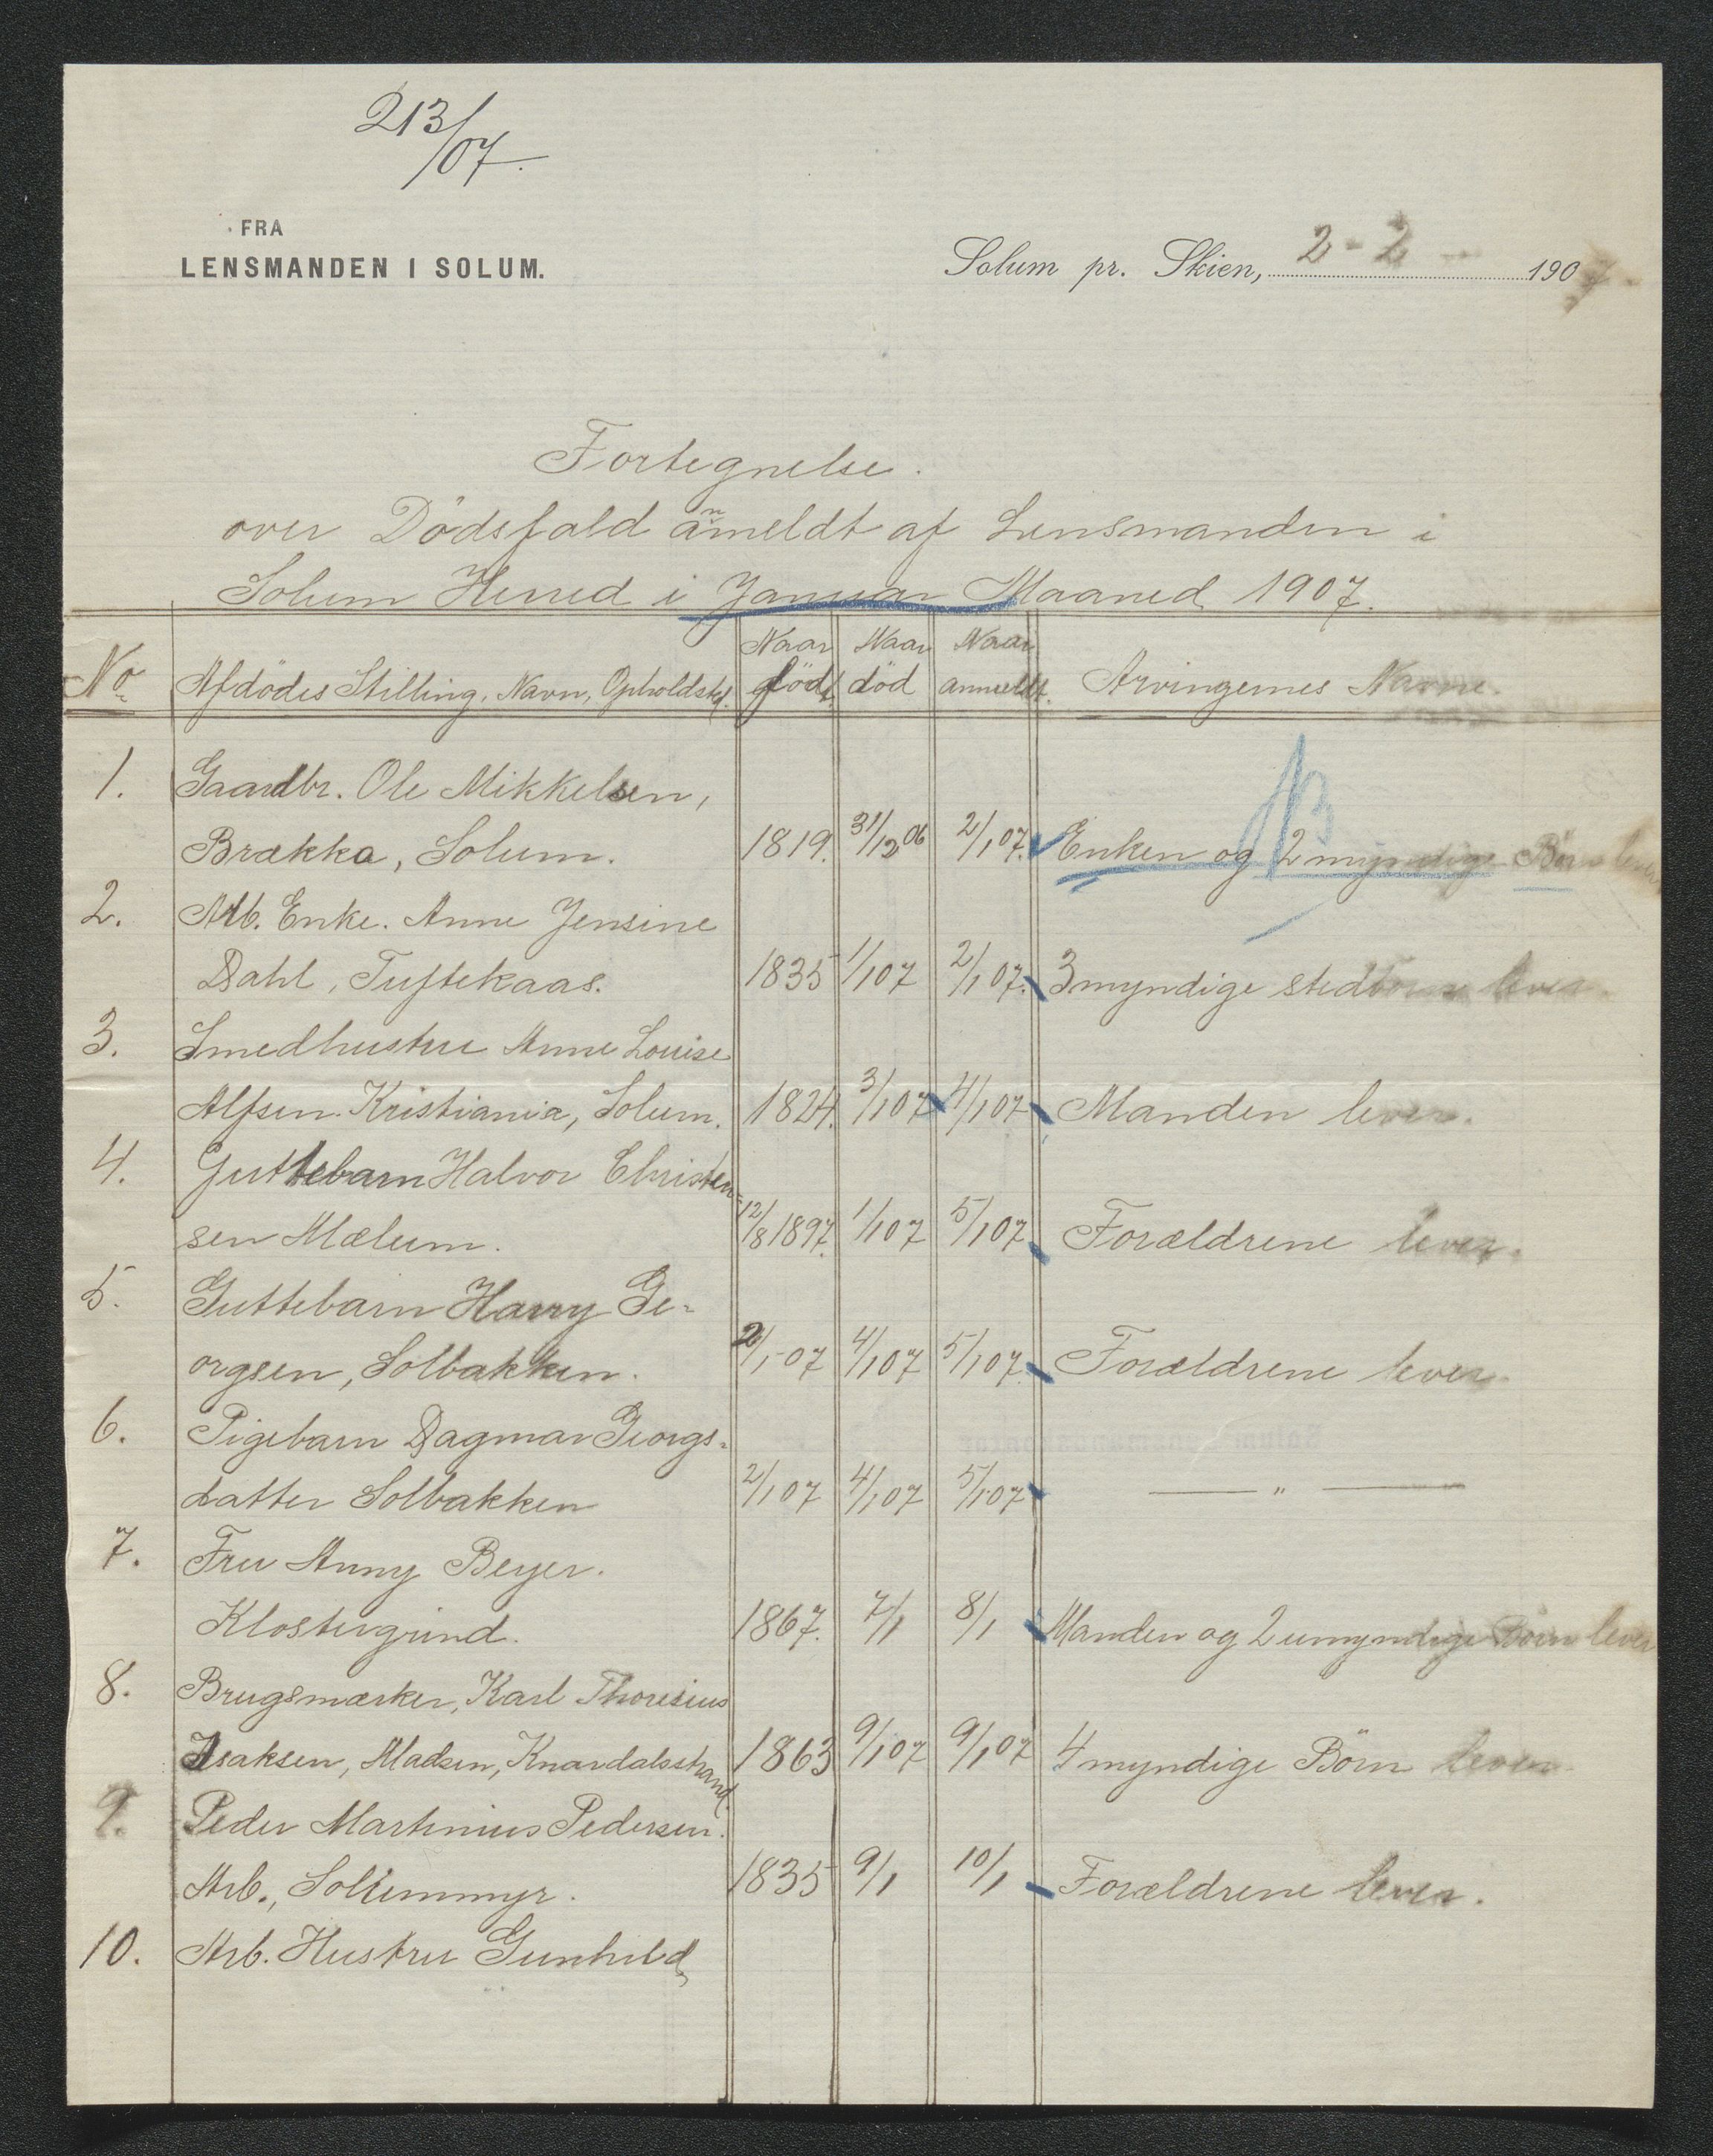 213/07.
FRA
LENSMANDEN I SOLUM.
Solum pr. Skien, 2-2 1907.
Fortegnelse.
over Dödsfald anmeldt af Lensmanden i
Solum Herred i Januar Maaned 1907.
No Afdödes Stilling, Navn, Opholdsted. Naar födt Naar död Naar anmeldt. Arvingernes Navne.
1. Gaardbr. Ole Mikkelsen,
Brækka, Solum. 1819. 31/12 06 2/1 07. Enken og 2 myndige Börn lever
2. Arb. Enke. Anne Jensine
Dahl, Tuftekaas. 1835 1/1 07 2/1 07. 3 myndige stedbörn lever.
3. Smedhustru Anne Louise
Alfsen. Kristiania, Solum. 1824. 3/1 07 4/1 07 Manden lever.
4. Guttebarn Halvor Christen-
sen Mælum. 12/8 1897. 1/1 07 5/1 07 Forældrene lever.
5. Guttebarn Harry Ge-
orgsen, Solbakken. 2/1-07 4/1 07 5/1 07. Forældrene lever.
6. Pigebarn Dagmar Georgs-
datter Solbakken 2/1 07 4/1 07 5/1 07 — " —
7. Fru Anny Beyer.
Klostergrund. 1867. 7/1 8/1 Manden og 2 umyndige Börn lever
8. Brugsmærker, Karl Thoresius
Isaksen, Madsen, Knardalsstrand. 1863 9/1 07 9/1 07 4 myndige Börn lever.
9. Peder Martinius Pedersen.
Arb., Solummyr. 1835 9/1 10/1 Forældrene lever.
10. Arb. Hustru Gunhild,